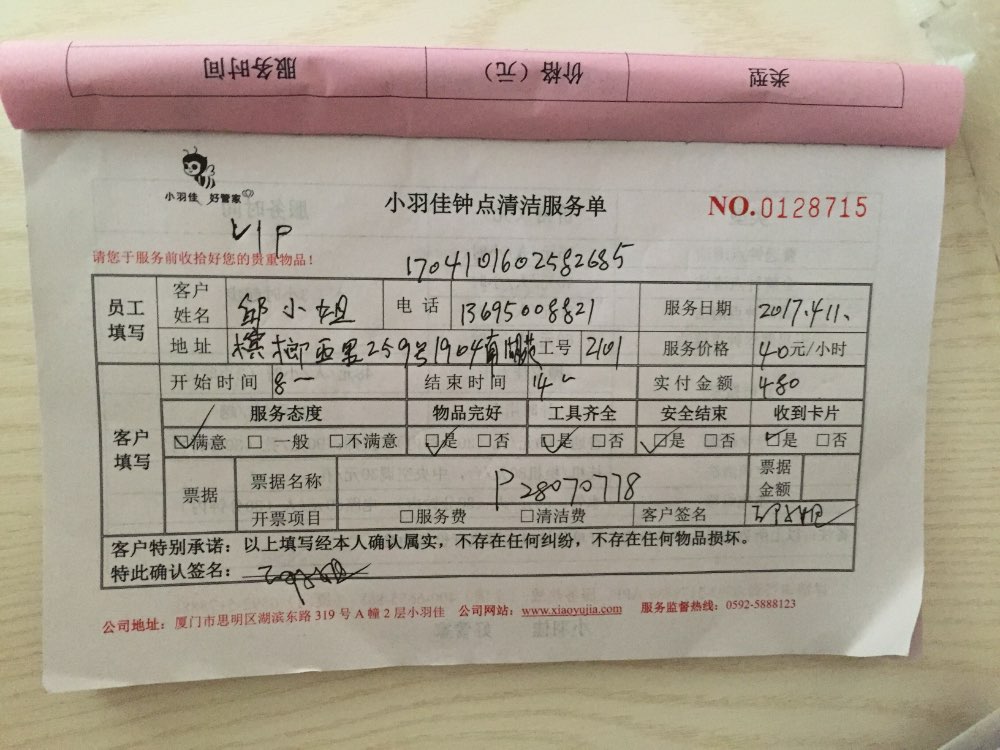 服务时间 价格（元） 类型
小羽佳 好管家
小羽佳钟点清洁服务单
NO.0128715
VIP
请您于服务前收拾好您的贵重物品！
1704101602582685
员工填写 客户姓名 邹小姐 电话 13695008821 服务日期 2017.4.11.
地址 槟榔西里259号1904 工号 2101 服务价格 40元/小时
开始时间 8 结束时间 14 实付金额 480
客户填写 服务态度 物品完好 工具齐全 安全结束 收到卡片
☑满意 □ 一般 □不满意 ☑是 □否 ☑是 □否 ☑是 □否 ☑是 □否
票据 票据名称 P28070778 票据金额
开票项目 □服务费 □清洁费 客户签名
客户特别承诺：以上填写经本人确认属实，不存在任何纠纷，不存在任何物品损坏。
特此确认签名：
公司地址：厦门市思明区湖滨东路 319 号 A 幢 2 层小羽佳 公司网站：www.xiaoyujia.com 服务监督热线：0592-5888123